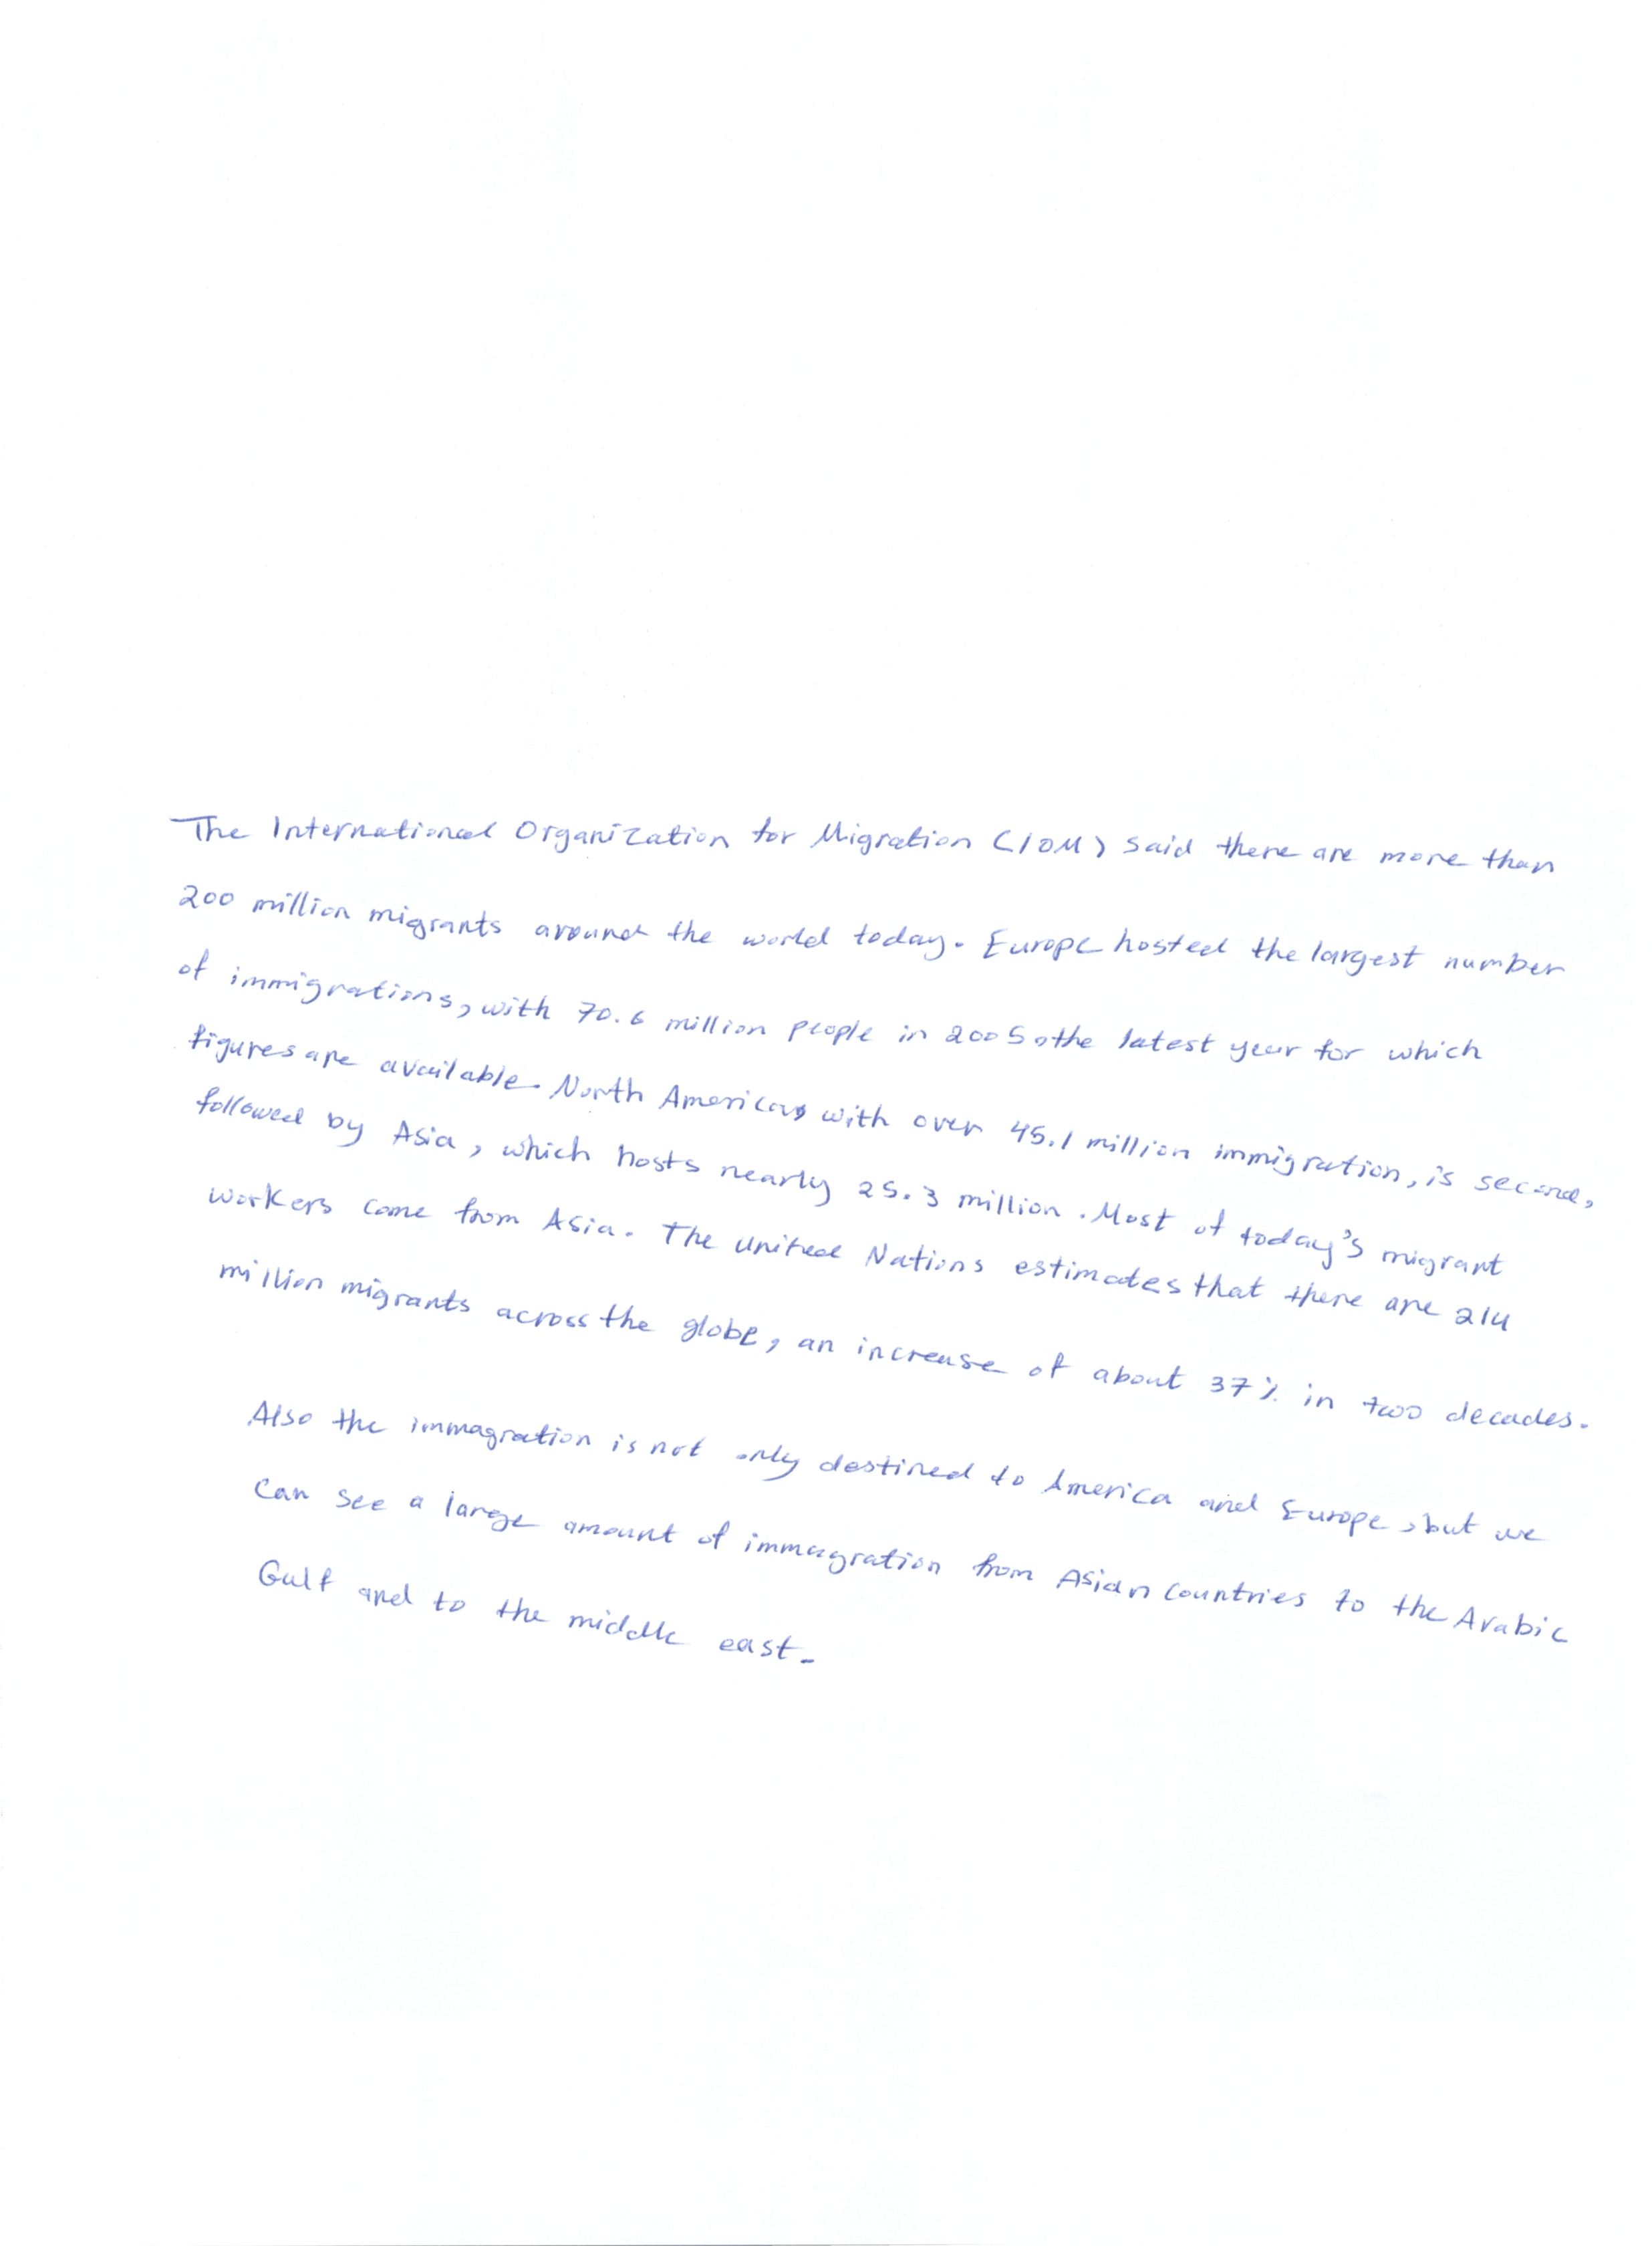 The International Organization for Migration (IOM) said there are more than
200 million migrants around the world today. Europe hosted the largest number
of immigrations, with 70.6 million people in 2005, the latest year for which
figures are available. North America, with over 45.1 million immigration, is second,
followed by Asia, which hosts nearly 25.3 million. Most of today's migrant
workers come from Asia. The United Nations estimates that there are 214
million migrants across the globe, an increase of about 37% in two decades.
Also the immagration is not only destined to America and Europe, but we
can see a large amount of immagration from Asian countries to the Arabic
Gulf and to the middle east.